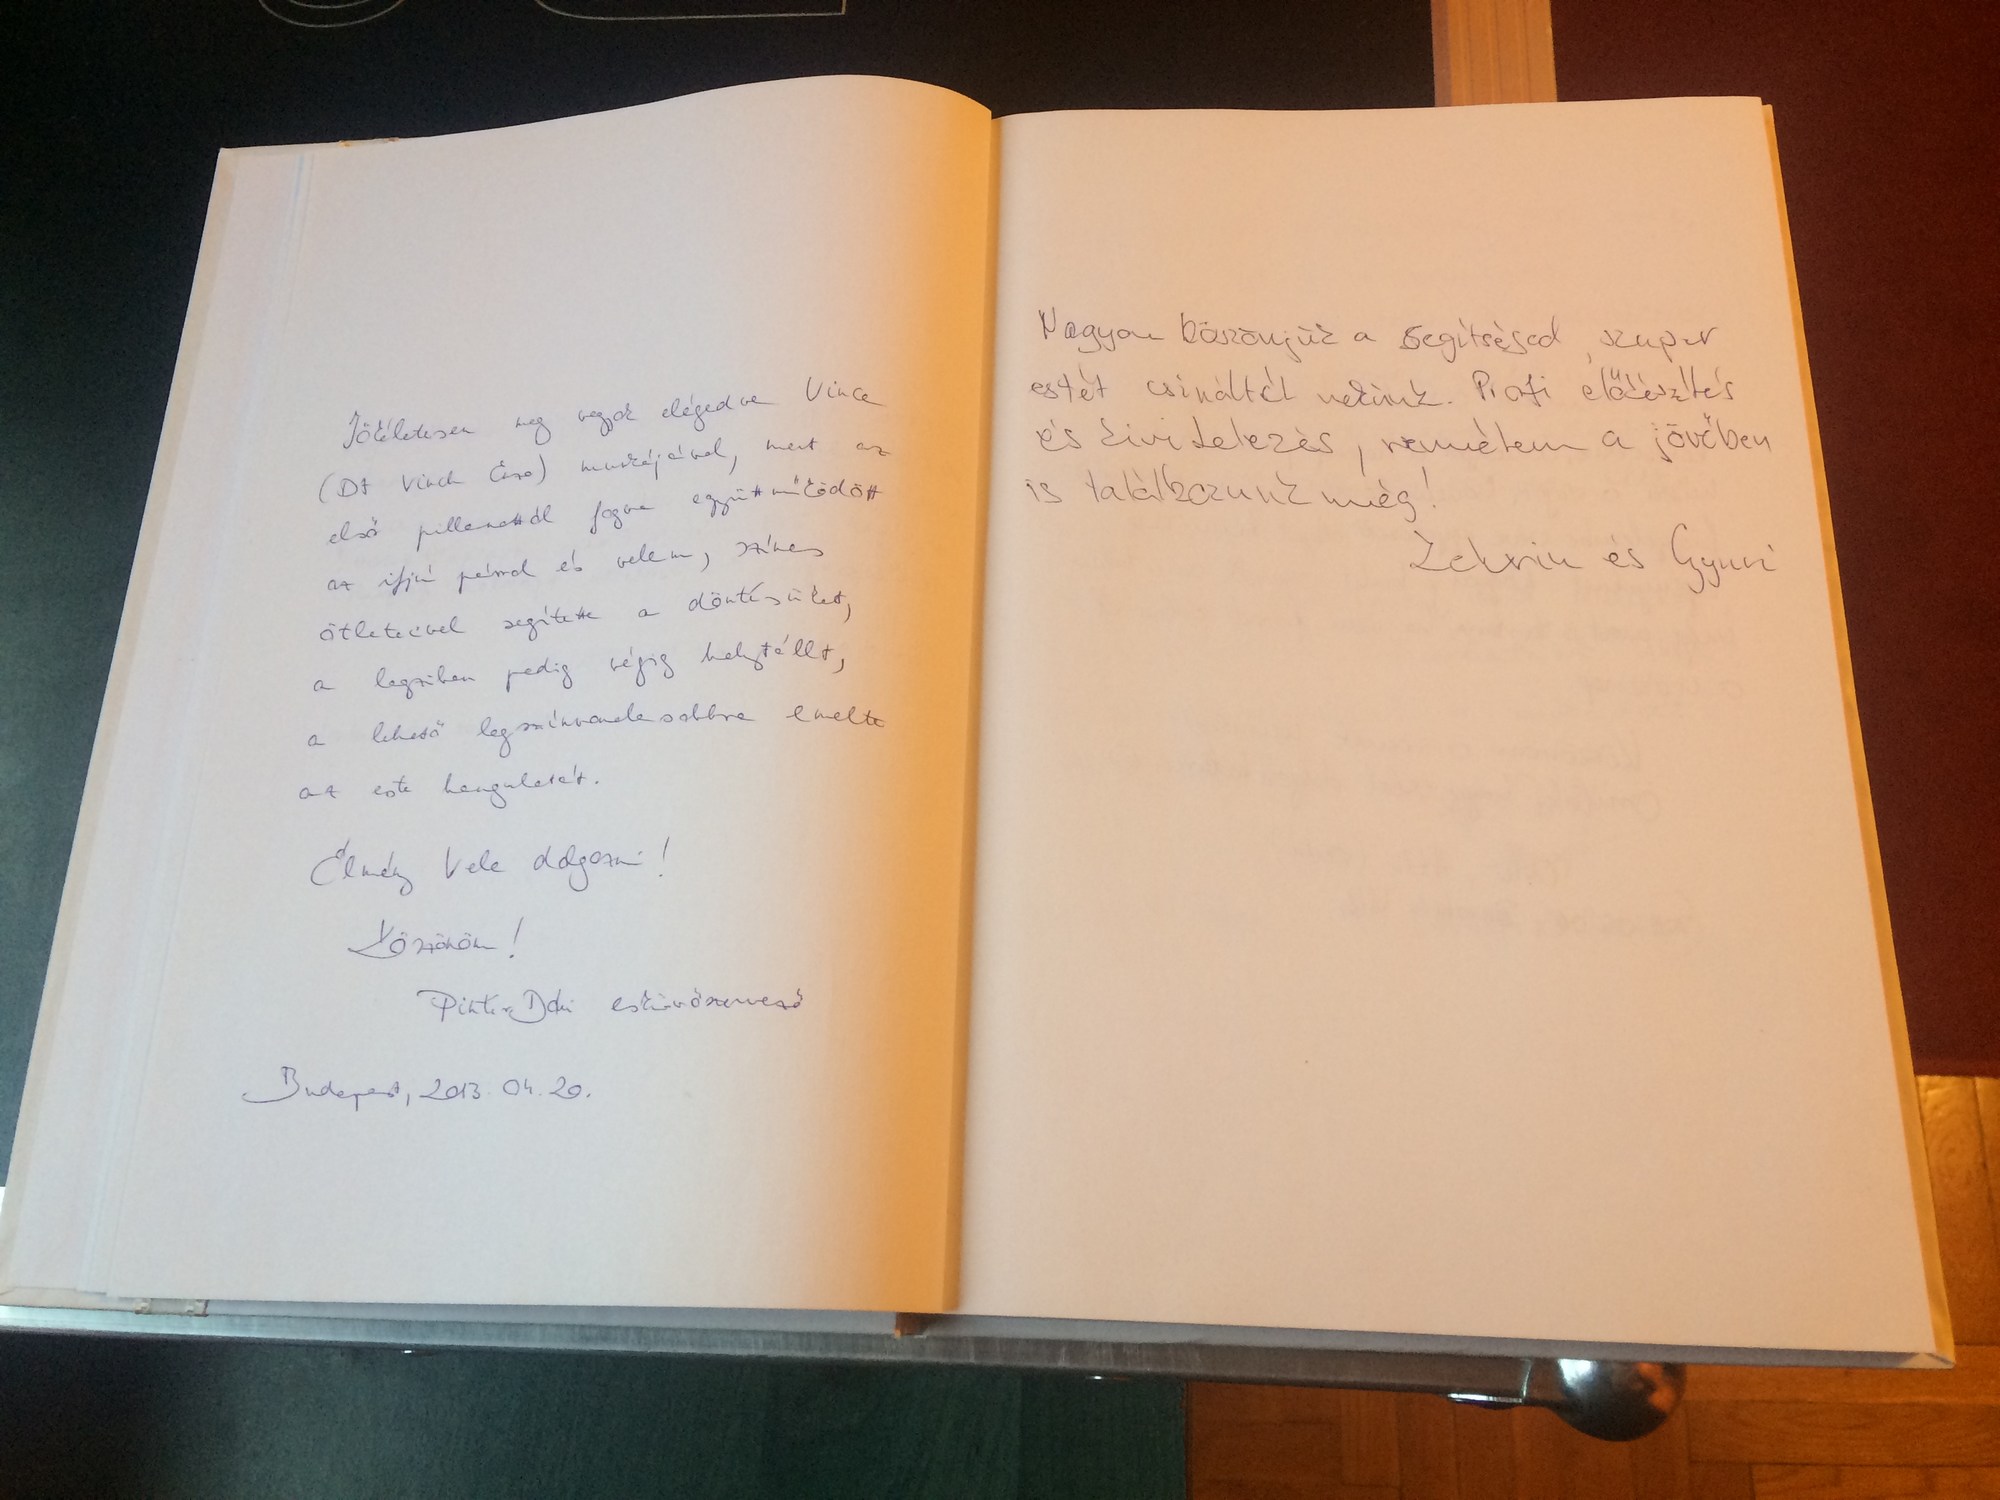 Tökéletesen meg vagyok elégedve Vince
(DJ Vinch Enzo) munkájával, mert az
első pillanattól fogva együttműködött
az ifjú párral és velem, színes
ötleteivel segítette a döntésüket,
a legziben pedig végig helytállt,
a lehető legszínvonalasabbra emelte
az este hangulatát.
Élmény Vele dolgozni!
Köszönöm!
Pintér Dóri esküvőszervező
Budapest, 2013. 04. 20.
Nagyon köszönjük a segítséged, szuper
estét csináltál nekünk. Profi előkészítés
és kivitelezés, remélem a jövőben
is találkozunk még!
és Gyuri